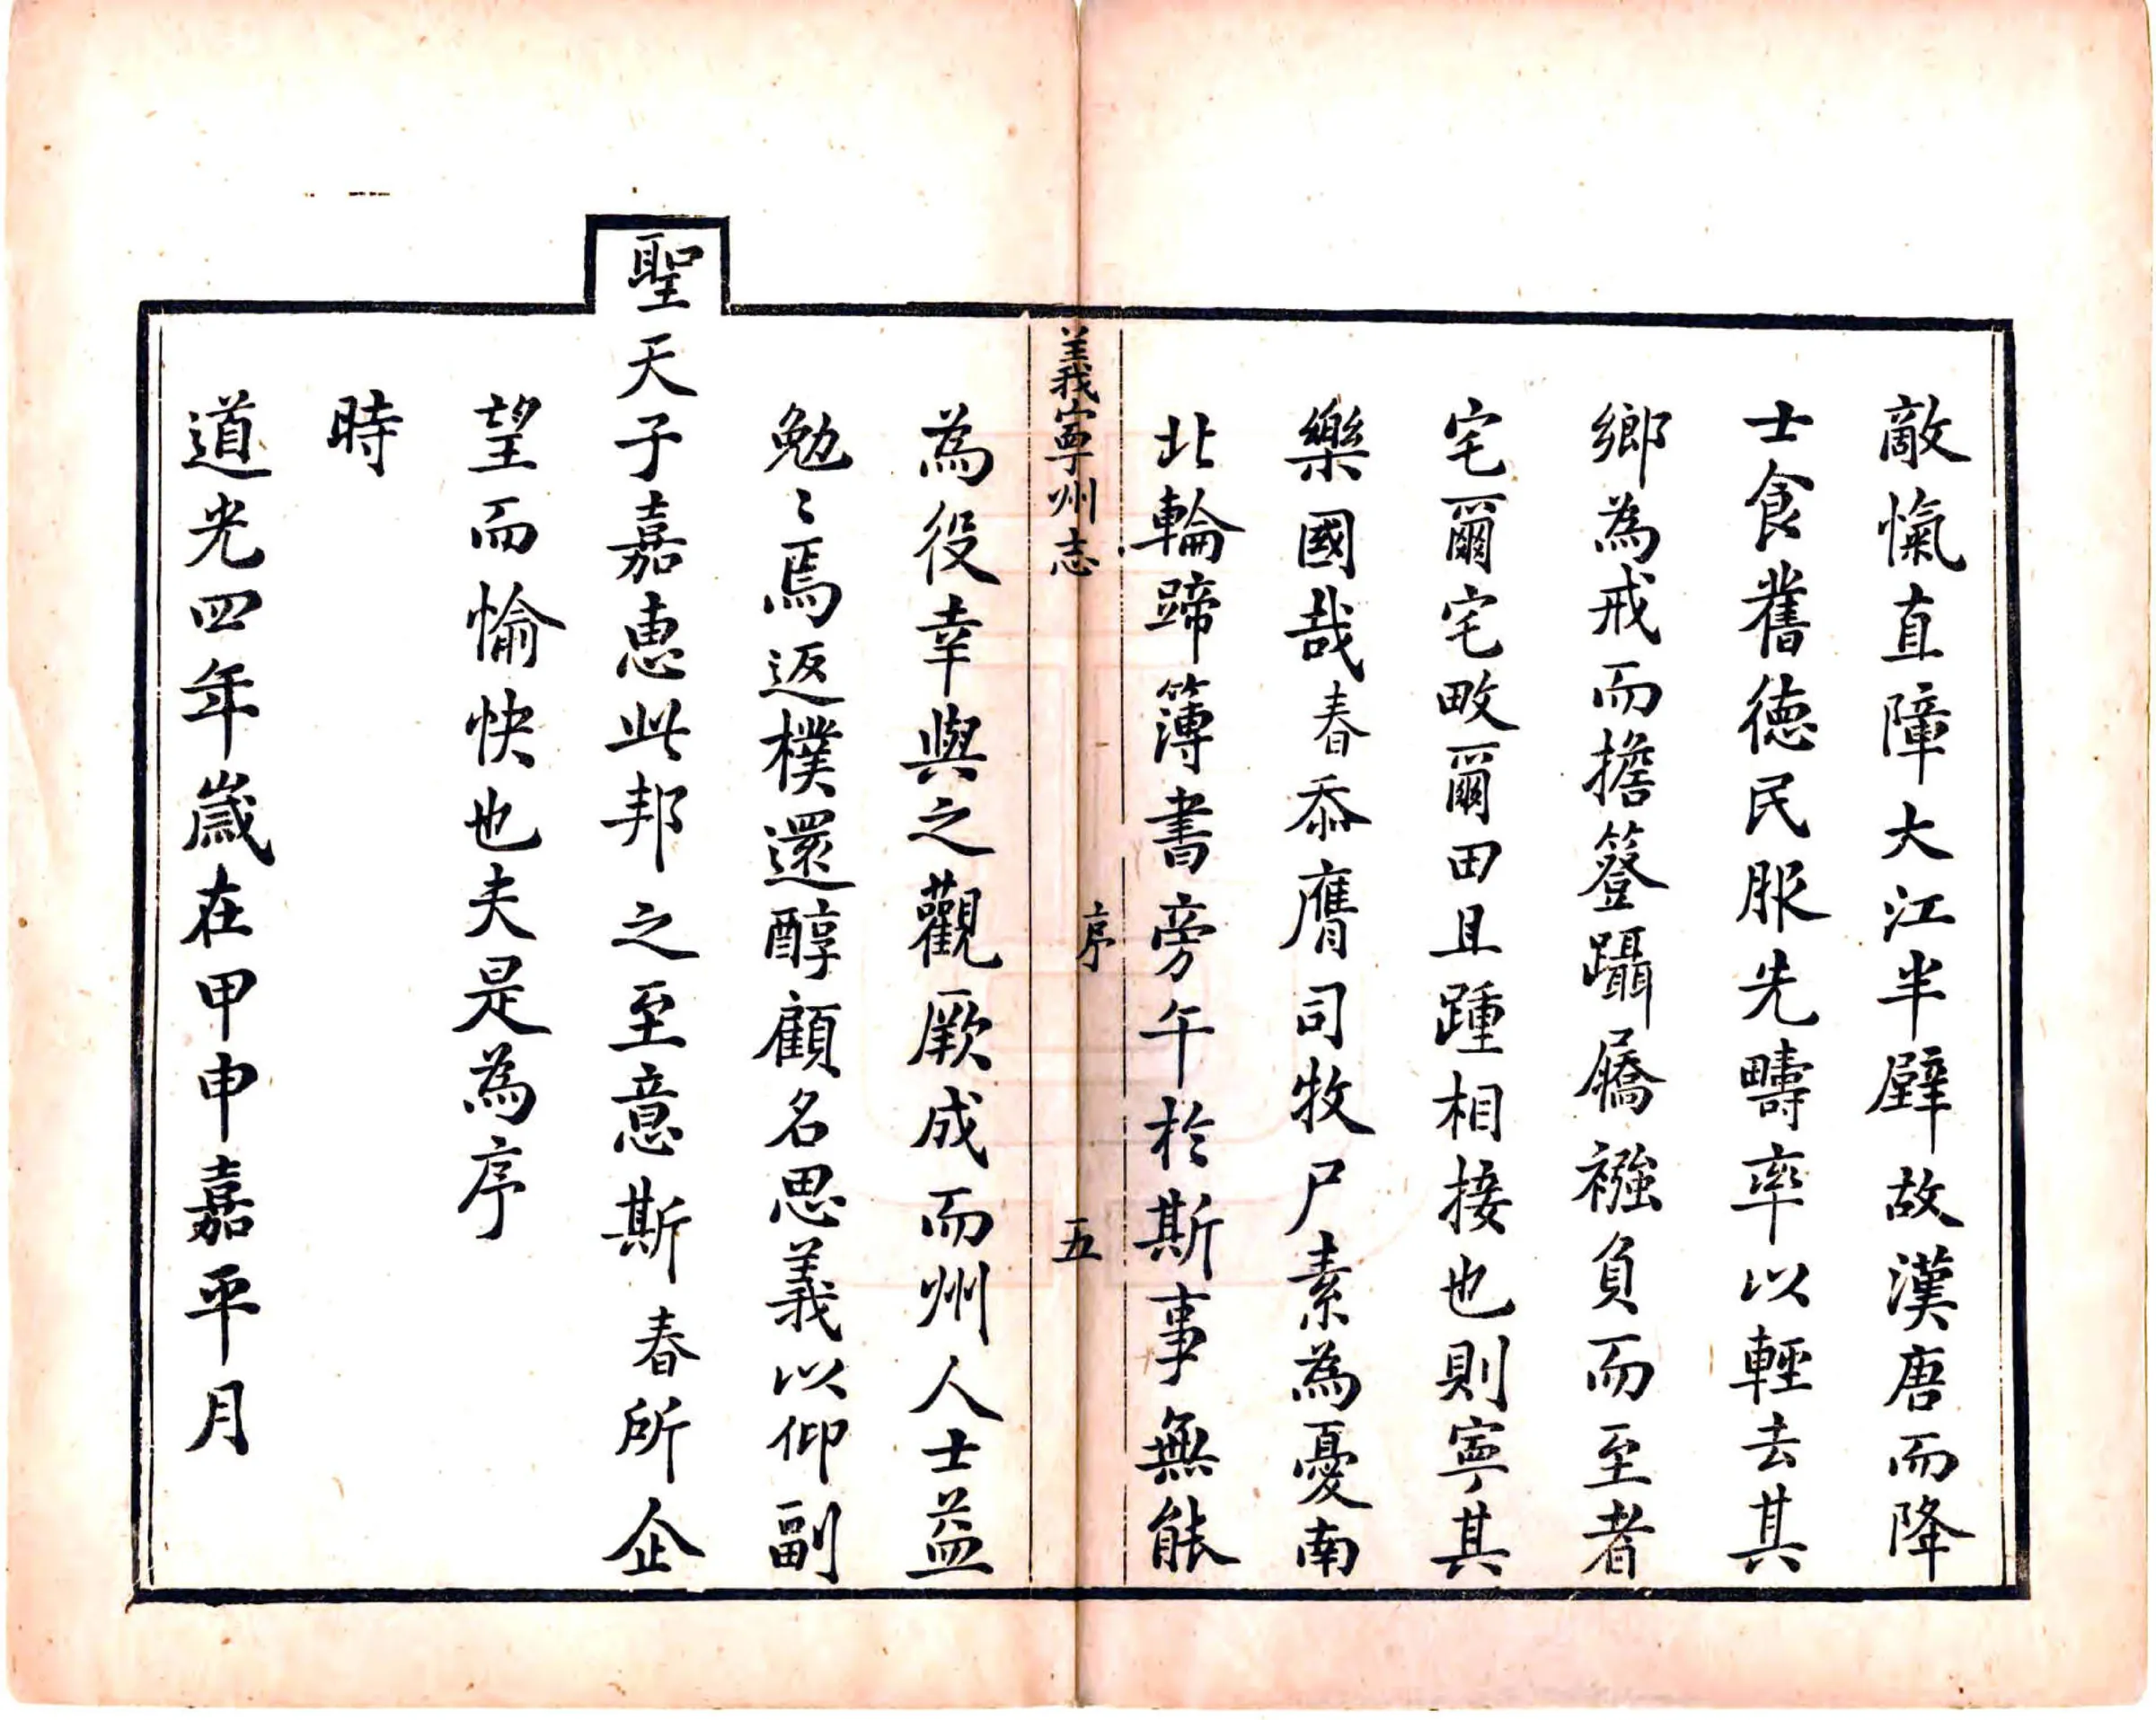 敵愾直障大江半壁故漢唐而降
士食舊徳民服先疇率以輕去其
鄉為戒而擔簦躡屩襁負而至者
宅爾宅畋爾田且踵相接也則寧其
樂國哉春忝膺司牧尸素為憂南
北輪蹄簿書旁午於斯事無能
義寧州志
序
五
為役幸與之觀厥成而州人士益
勉〻焉返樸還醇顧名思義以仰副
聖天子嘉惠此邦之至意斯春所企
望而愉快也夫是為序
時
道光四年歲在甲申嘉平月